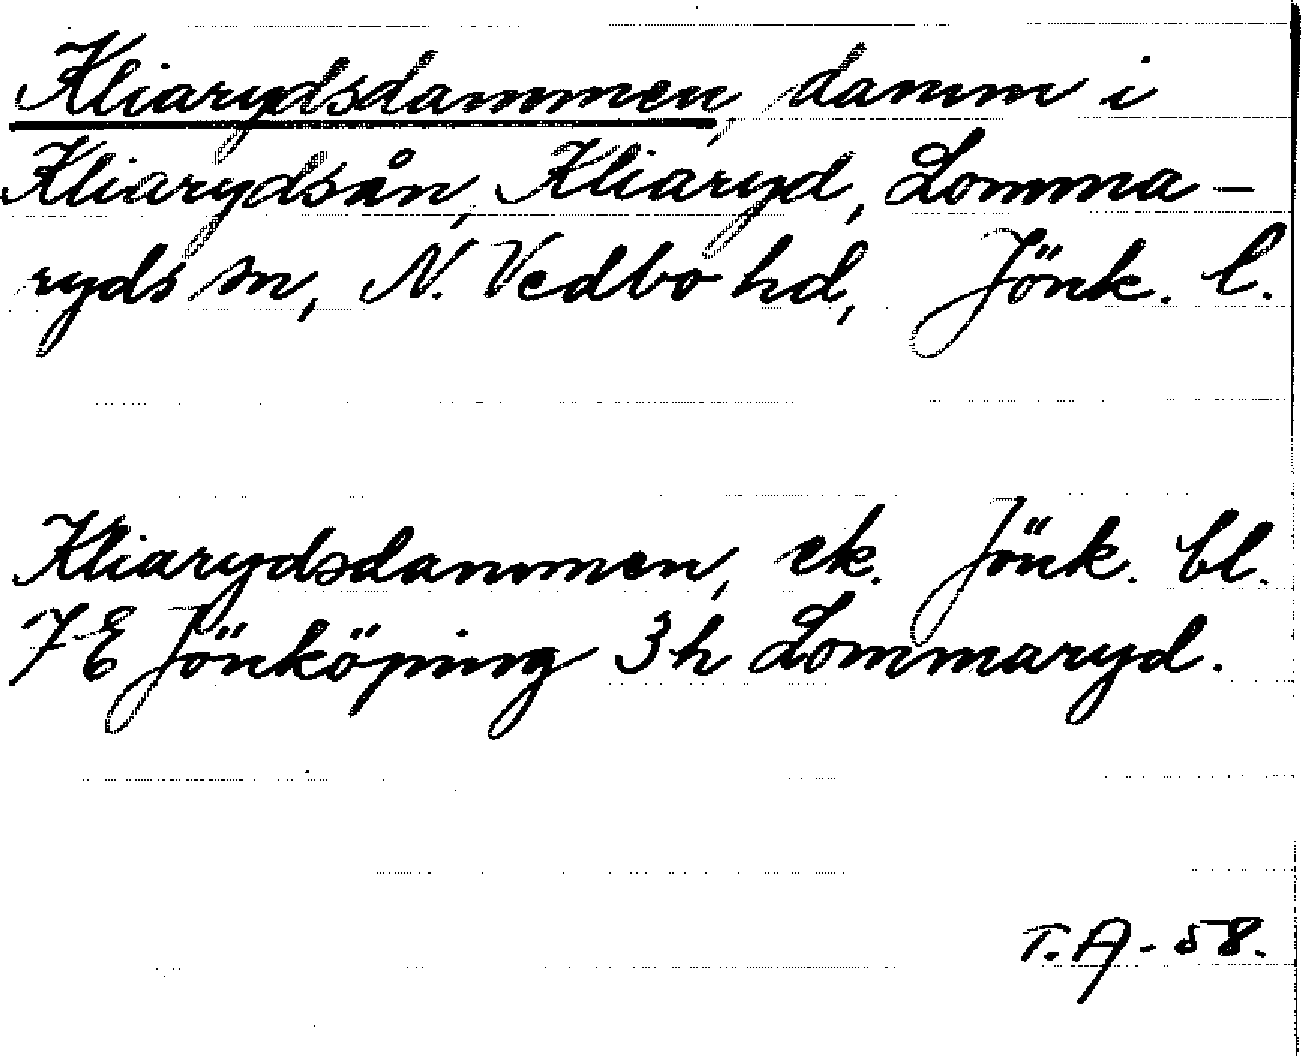 Kliarydsdammen, damm i
Kliarydsån, Kliaryd, Lomma-
ryds sn, N. Vedbo hd, Jönk. l.
Kliarydsdammen, ek. Jönk. bl.
7E Jönköping 3h Lommaryd.
T.A-58.